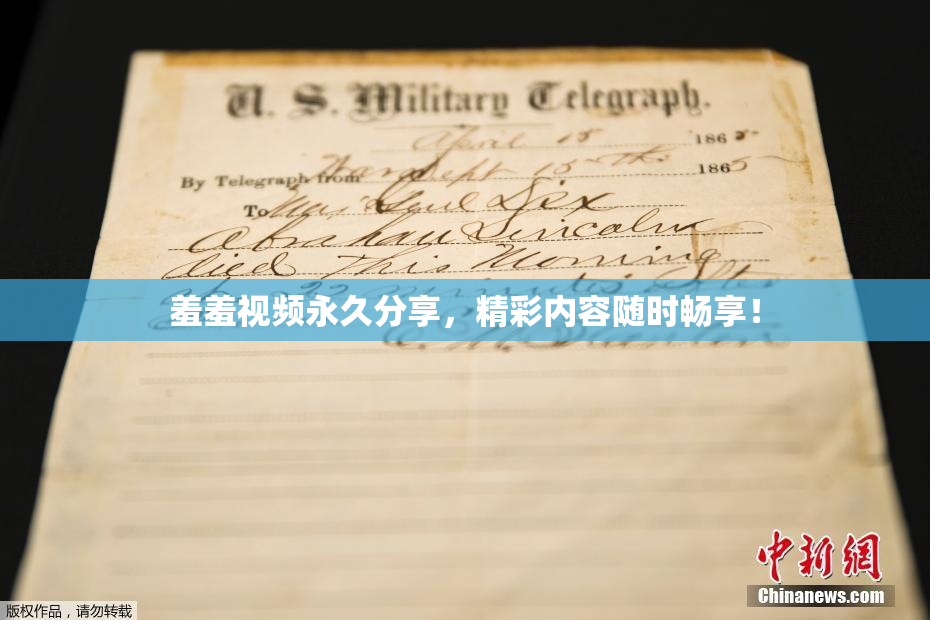 U. S. Military Telegraph.
April 15 1865
By Telegraph from War Dept 15th 1865
To Maj Genl Dix
Abraham Lincoln
died This Morning
at 22 minutes after
羞羞视频永久分享，精彩内容随时畅享！
E. M. Stanton
中新網
Chinanews.com
版权作品，请勿转载